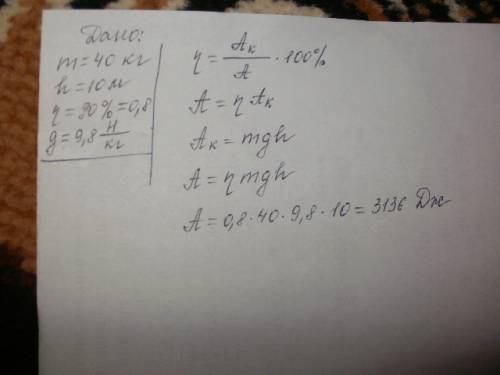 Дано:
m=40 кг
h=10м
η=90%=0,8
g=9,8 Н/кг
η = Aк/A · 100%
A = η Aк
Aк = mgh
A = η mgh
A = 0,8·40·9,8·10 = 3136 Дж